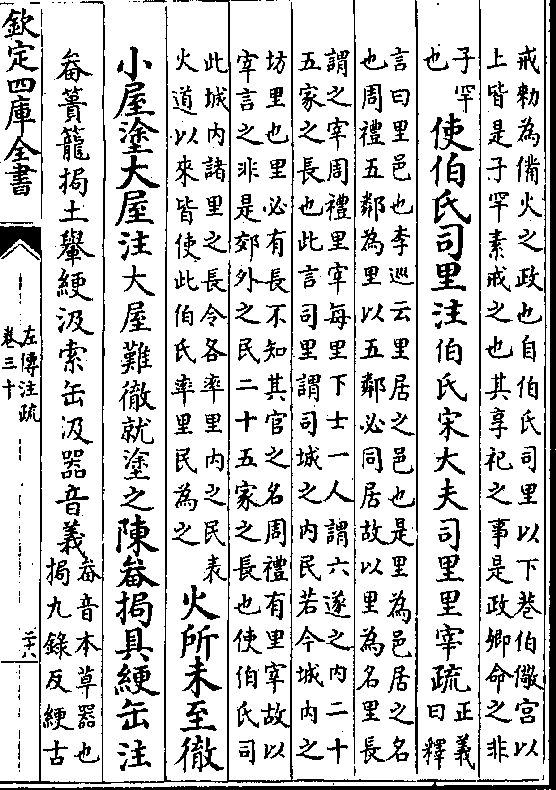 戒勅為備火之政也自伯氏司里以下巷伯儆宮以
上皆是子罕素戒之也其享祀之事是政卿命之非
子罕
也
使伯氏司里注伯氏宋大夫司里里宰疏
正義
曰釋
言曰里邑也李巡云里居之邑也是里為邑居之名
也周禮五鄰為里以五鄰必同居故以里為名里長
謂之宰周禮里宰每里下士一人謂六遂之内二十
五家之長也此言司里謂司城之内民若今城内之
坊里也里必有長不知其官之名周禮有里宰故以
宰言之非是郊外之民二十五家之長也使伯氏司
此城内諸里之長令各率里内之民表
火道以來皆使此伯氏率里民為之
火所未至徹
小屋塗大屋注大屋難徹就塗之陳畚挶具綆缶注
畚簣籠挶土轝綆汲索缶汲器音義
畚音本草器也
挶九錄反綆古
欽定四庫全書
左傳注疏
卷三十
二十八